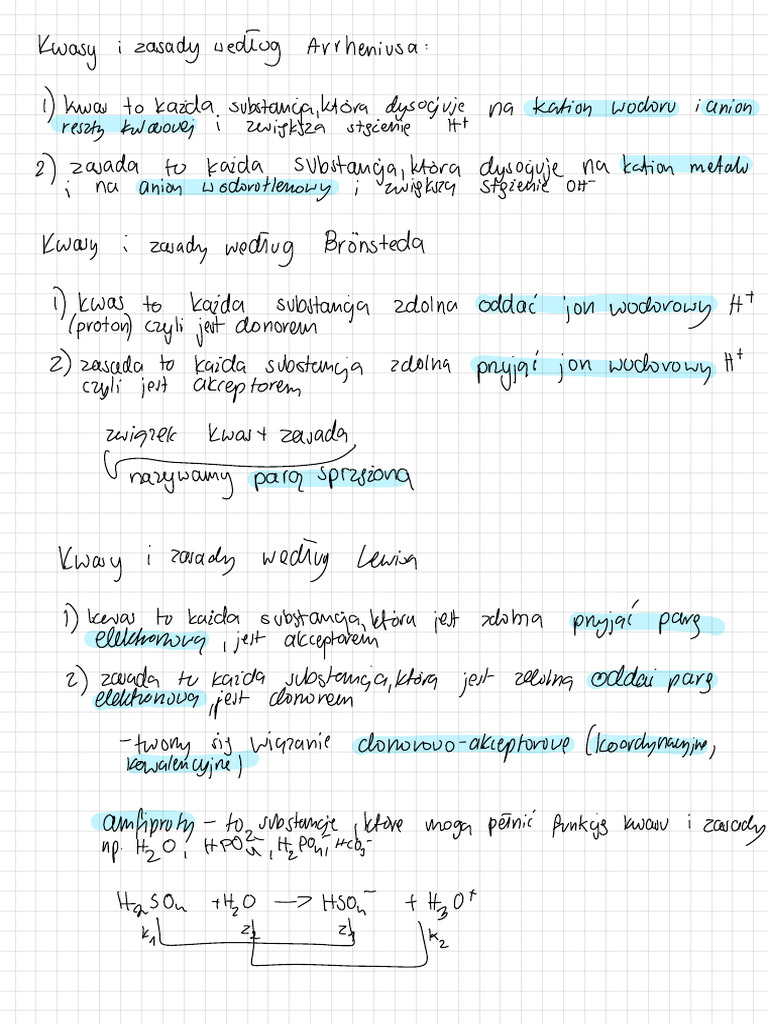 Kwasy i zasady według Arrheniusa:
1) kwas to każda substancja, która dysocjuje na kation wodoru i anion
reszty kwasowej i zwiększa stężenie H⁺
2) zasada to każda substancja, która dysocjuje na kation metalu
i na anion wodorotlenowy i zwiększa stężenie OH⁻
Kwasy i zasady według Brönsteda
1) kwas to każda substancja zdolna oddać jon wodorowy H⁺
(proton) czyli jest donorem
2) zasada to każda substancja zdolna przyjąć jon wodorowy H⁺
czyli jest akceptorem
związek kwas + zasada
nazywamy parą sprzężoną
Kwasy i zasady według Lewisa
1) kwas to każda substancja, która jest zdolna przyjąć parę
elektronową, jest akceptorem
2) zasada to każda substancja, która jest zdolna oddać parę
elektronową, jest donorem
- tworzy się wiązanie donorowo-akceptorowe (koordynacyjne,
kowalencyjne)
amfiproty - to substancje, które mogą pełnić funkcję kwasu i zasady
np. H₂O, HPO₄²⁻, H₂PO₄⁻, HCO₃⁻
H₂SO₄ + H₂O → HSO₄⁻ + H₃O⁺
k₁ z₂ z₁ k₂